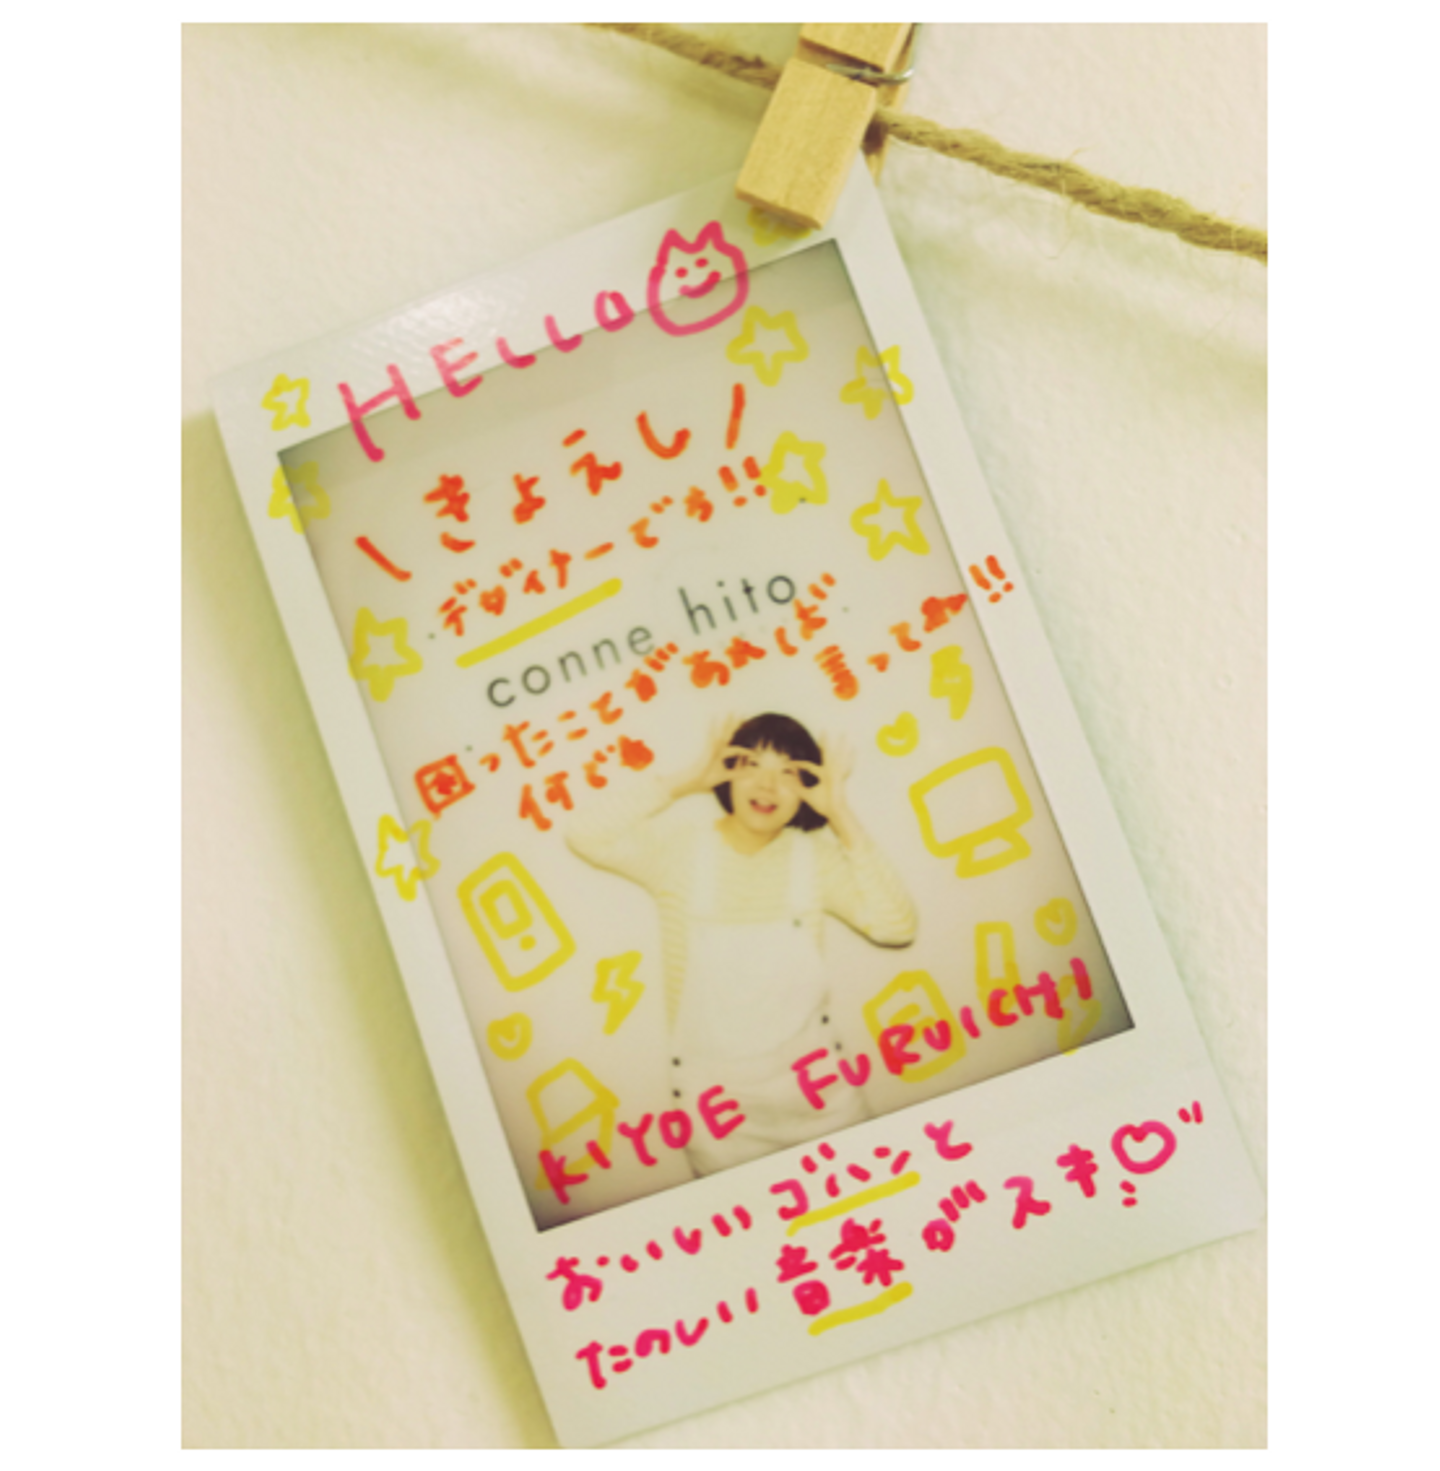 HELLO
\きょえし/
デザイナーです!!
conne hito
困ったことがあれば
何でも言ってね!!
KIYOE FURUICHI
おいしいゴハンと
たのしい音楽がスキ